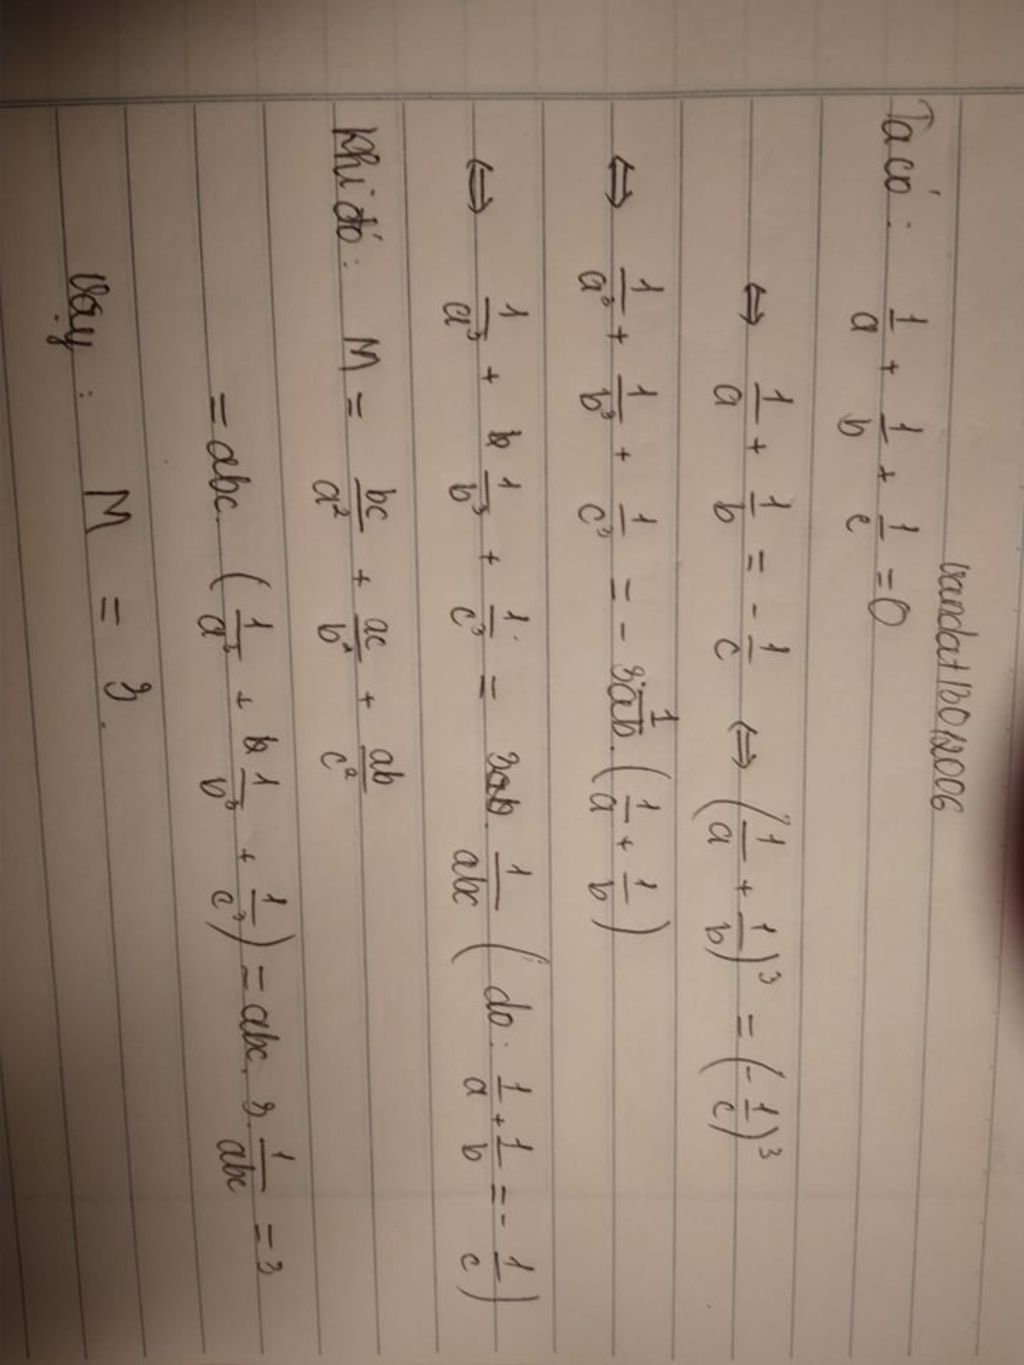 vandat13012006
Ta có: 1/a + 1/b + 1/c = 0
⇔ 1/a + 1/b = - 1/c ⇔ (1/a + 1/b)³ = (- 1/c)³
⇔ 1/a³ + 1/b³ + 1/c³ = - 3 1/ab . (1/a + 1/b)
⇔ 1/a³ + 1/b³ + 1/c³ = 3 . 1/abc (do: 1/a + 1/b = - 1/c)
Khi đó: M = bc/a² + ac/b² + ab/c²
= abc. (1/a³ + 1/b³ + 1/c³) = abc. 3 1/abc = 3
Vậy: M = 3.